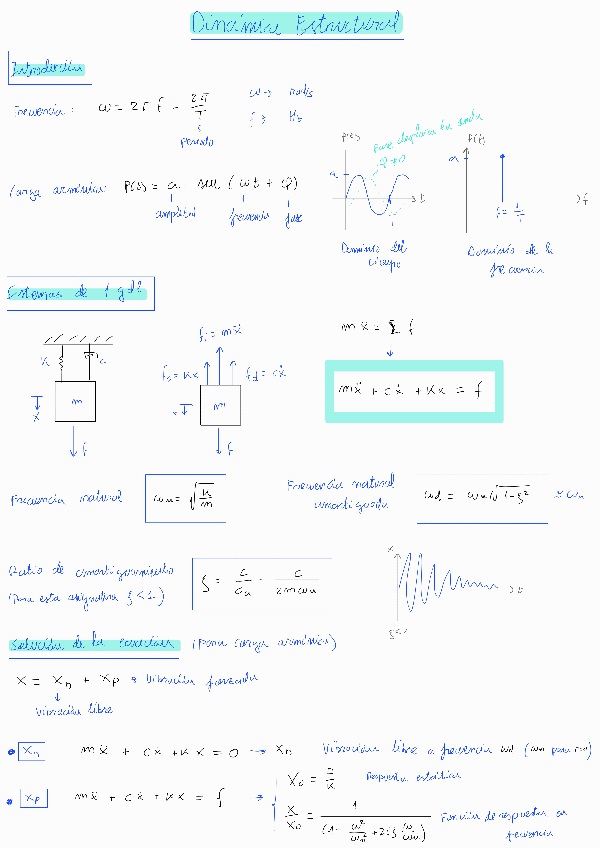 Dinámica Estructural
Introducción
Frecuencia: ω = 2π f = 2π/T
ω → rad/s
f → Hz
periodo
Carga armónica: P(t) = a sen (ωt + φ)
amplitud frecuencia fase
P(t)
a
t
Dominio del
tiempo
Fase desplaza la onda
φ ≠ 0
P(f)
a
f = 1/T
f
Dominio de la
frecuencia
Sistemas de 1 gdl
k
c
m
x
f
fi = mẍ
fs = kx
fd = cẋ
m
x
f
mẍ = Σ f
mẍ + cẋ + kx = f
Frecuencia natural
ωn = √(k/m)
Frecuencia natural
amortiguada
ωd = ωn √(1-ξ²) ≈ ωn
Ratio de amortiguamiento
(Para esta asignatura ξ<1)
ξ = c/cn = c/(2mωn)
x
t
ξ<1
Solución de la ecuación (para carga armónica)
x = xh + xp → Vibración forzada
Vibración libre
• xh mẍ + cẋ + kx = 0 → xh Vibración libre a frecuencia ωd (ωn para c=0)
• xp mẍ + cẋ + kx = f ⇒
x0 = F/k Respuesta estática
x/x0 = 1/(1 - ω²/ωn² + 2iξ ω/ωn) Función de respuesta en
frecuencia